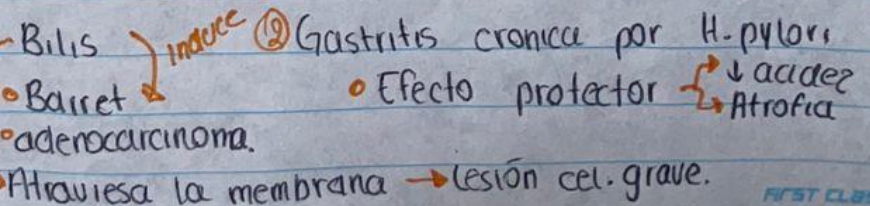 -Bilis induce ⑫ Gastritis cronica por H. pylori
• Barret • Efecto protector ↓ acidez
Atrofia
• adenocarcinoma.
• Atraviesa la membrana → lesión cel. grave.
FIRST CLASS